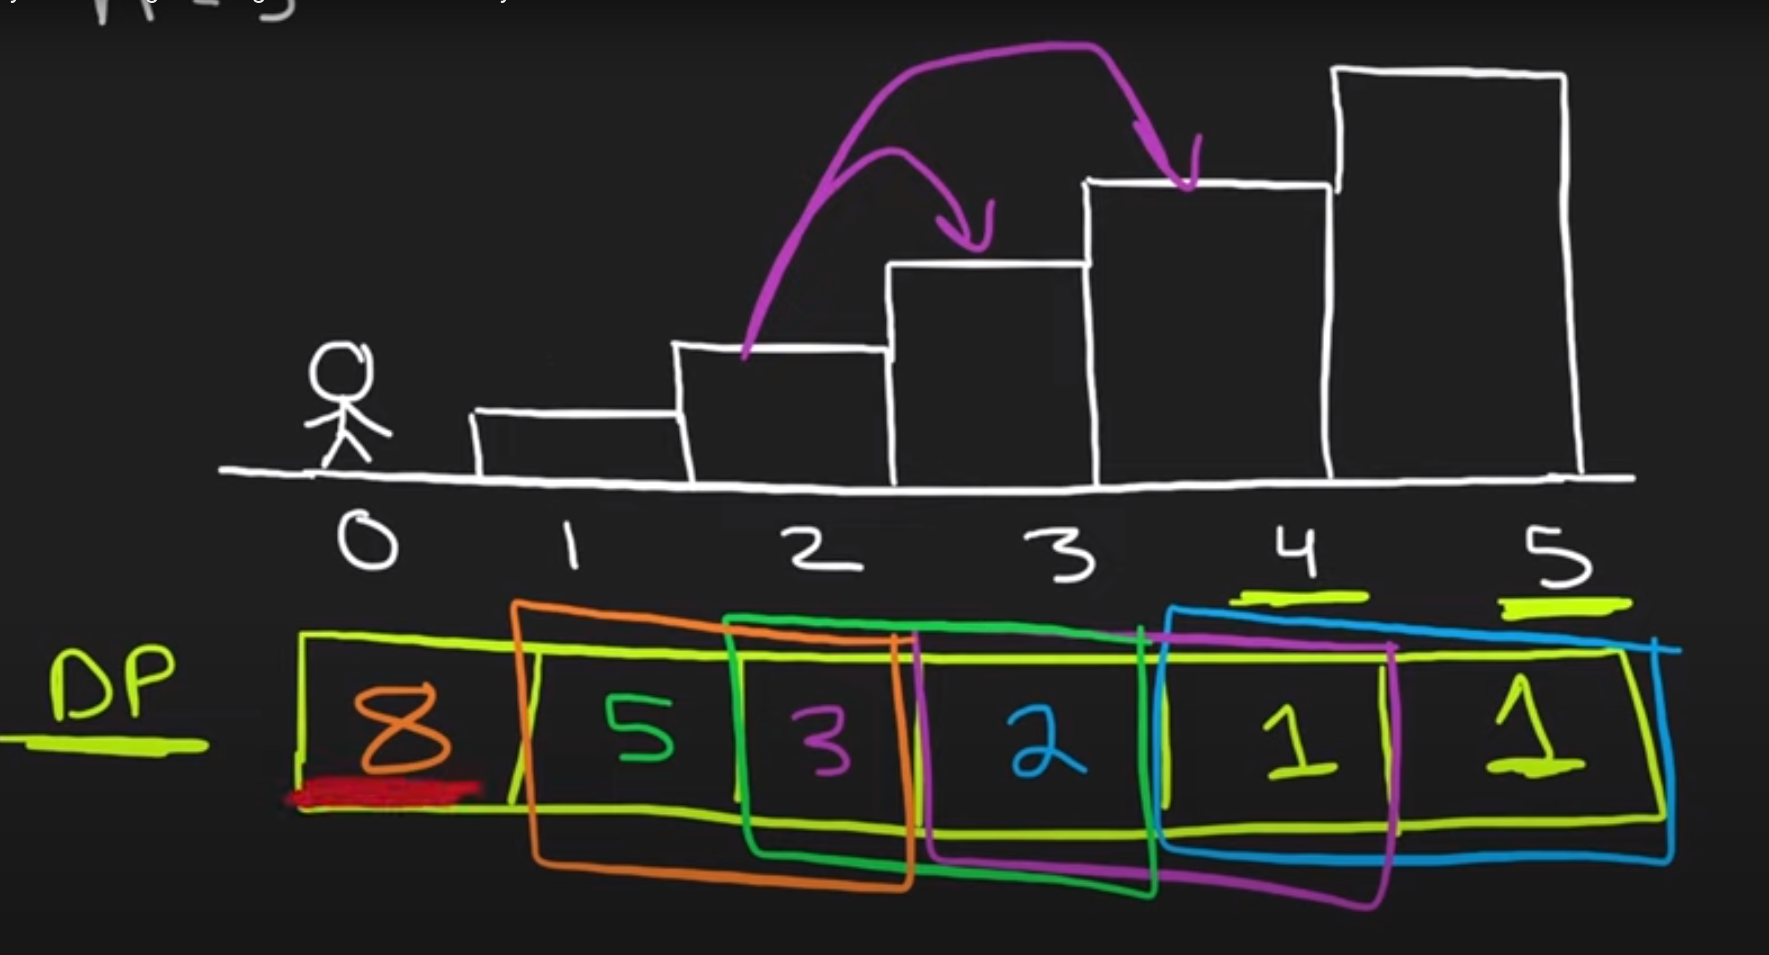 0 1 2 3 4 5
DP 8 5 3 2 1 1